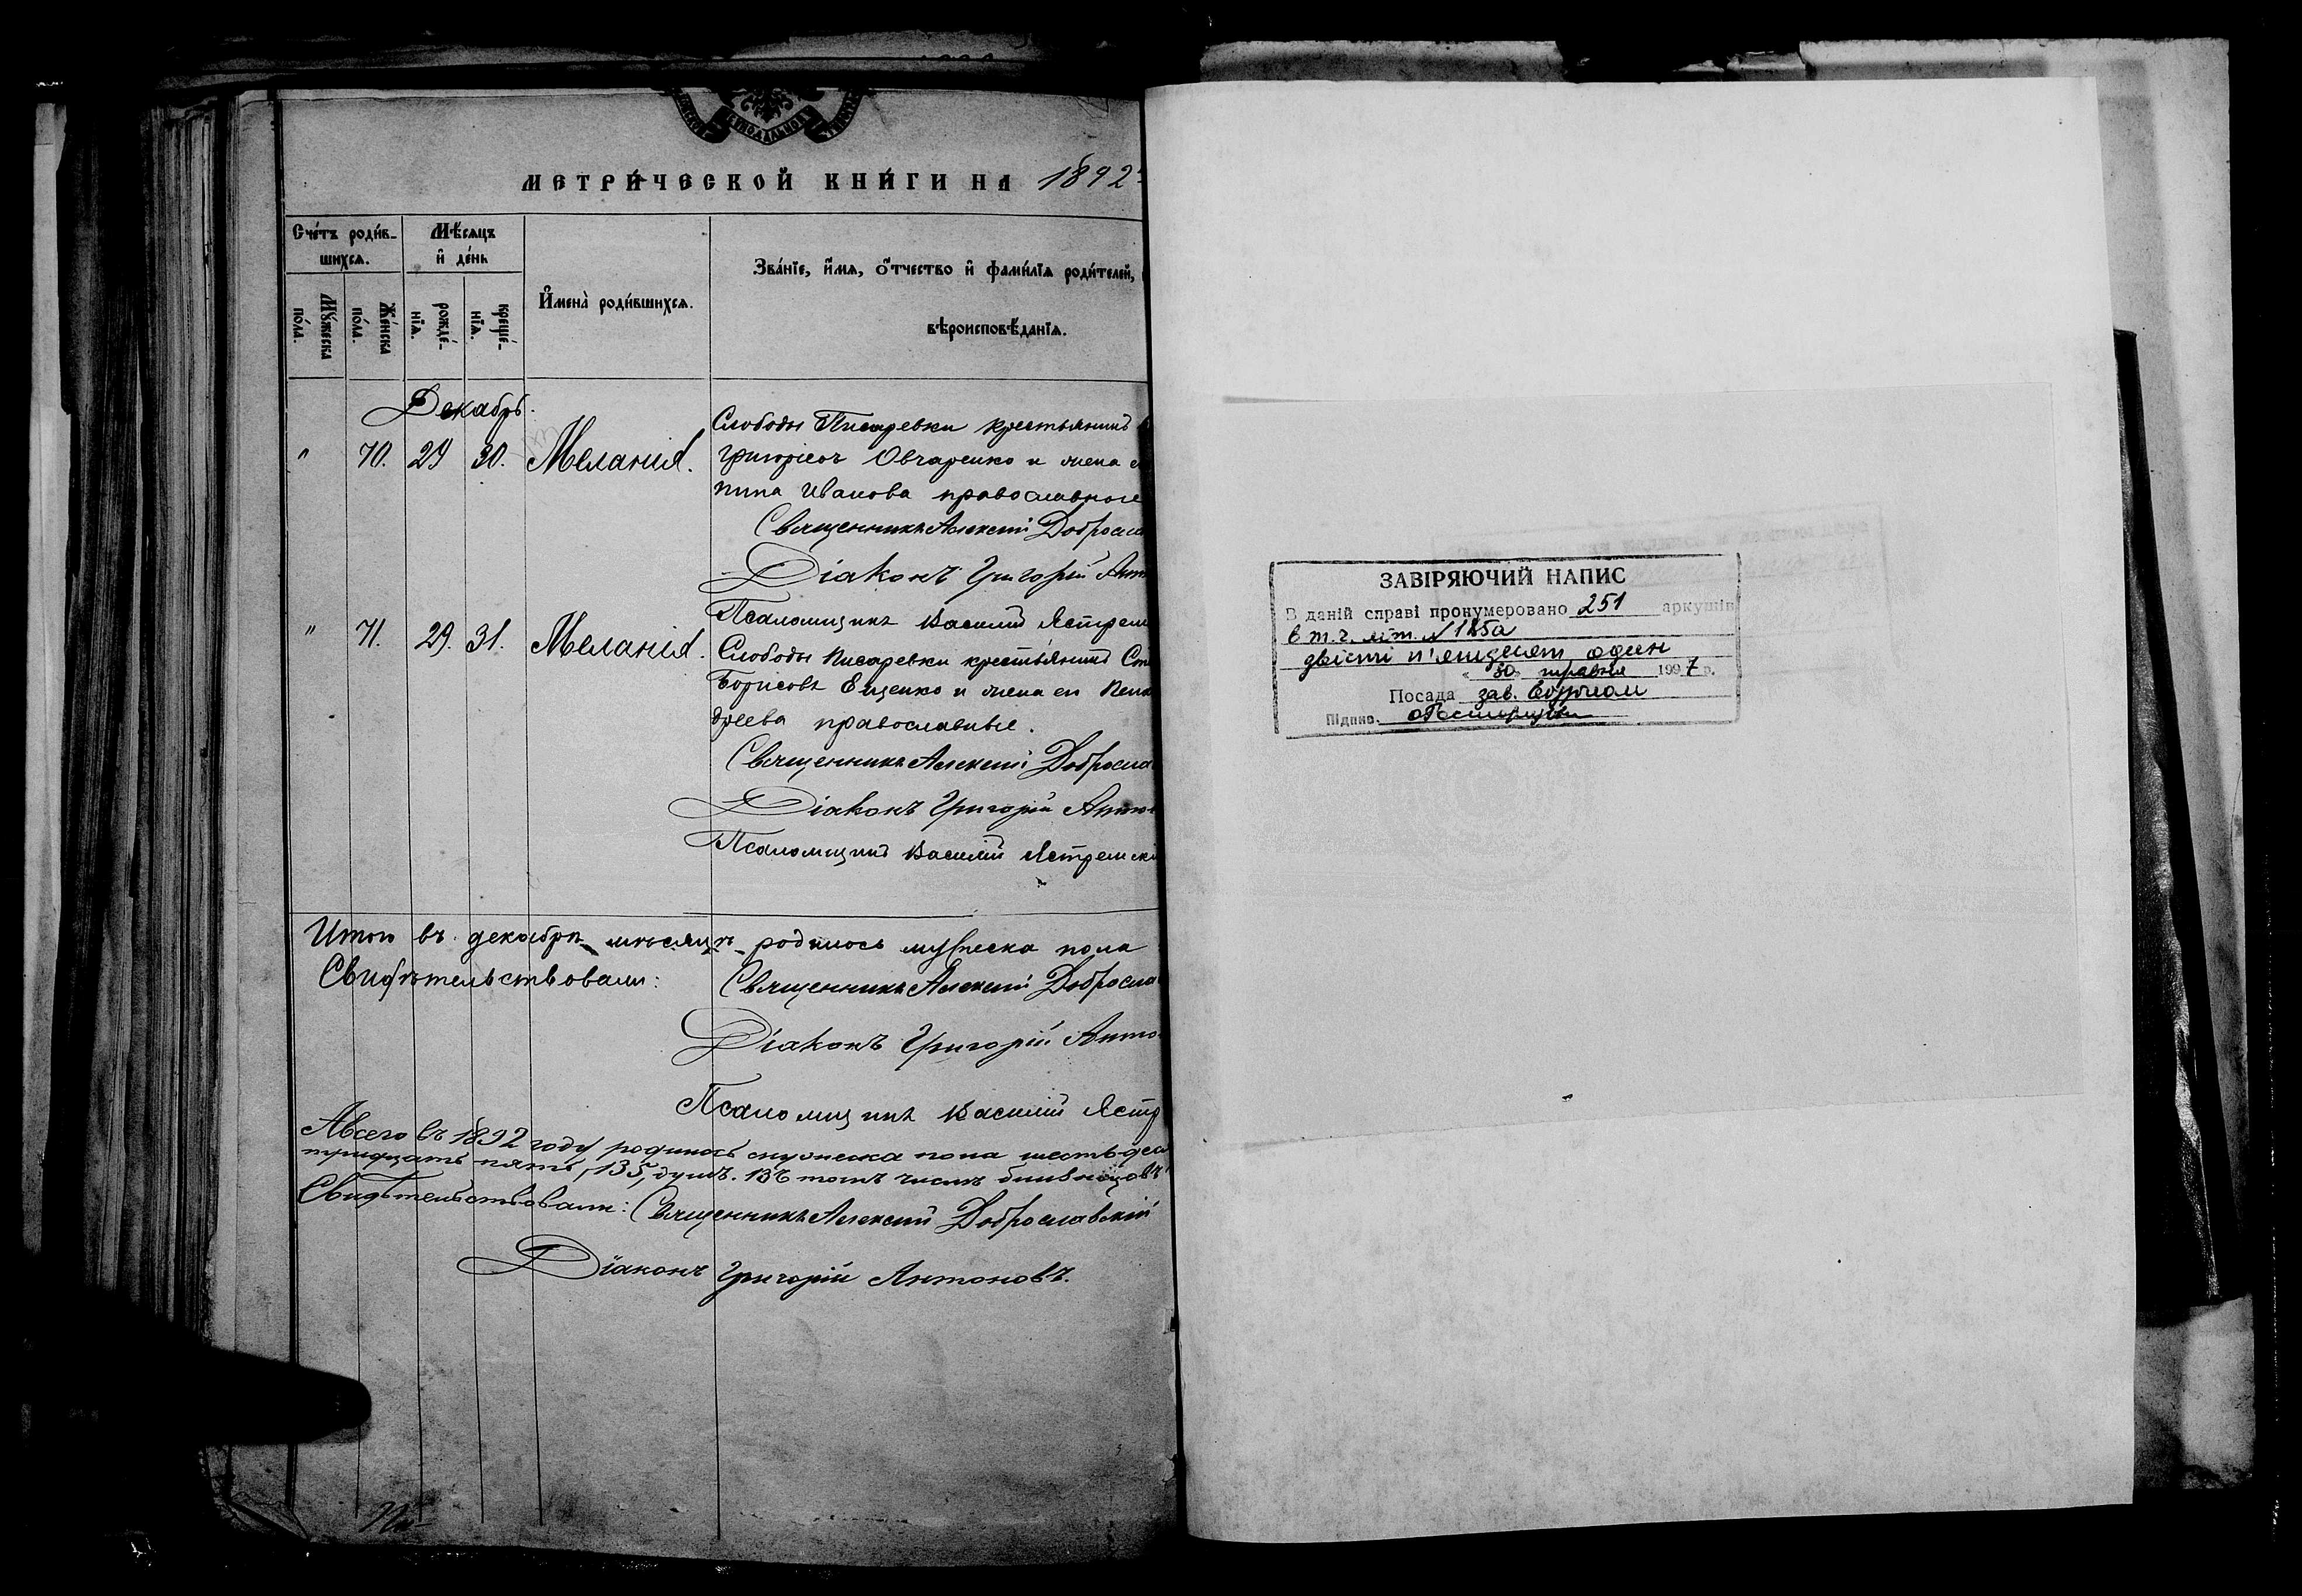 МЕТРИ́ЧЕСКОЙ КНИ́ГИ НА 1892
Сче́тъ роди́в-
шихсѧ.
Мѣ́сѧцъ
и҆ де́нь
Мꙋ́жеска
по́ла.
Же́нска
по́ла.
рожде́-
нїѧ.
креще́-
нїѧ.
И҆мена̀ роди́вшихсѧ.
Зва́нїе, и҆́мѧ, ѻ҆́тчество и҆ фами́лїѧ роди́телей,
вѣроисповѣ́данїѧ.
Декабрь.
Слободы Писаревки крестьянинъ
" 70. 29 30. Меланія.
Григоріевъ Овчаренко и жена
пина Иванова православные
Священникъ Алексій Доброслав
Діаконъ Григорій Ант
Псаломщикъ Василій Ястрем
" 71. 29. 31. Меланія.
Слободы Писаревки крестьянинъ
Борисовъ Ещенко и жена ея
дреева православные.
Священникъ Алексій Доброслав
Діаконъ Григорій Антон
Псаломщикъ Василій Ястремскі
Итого въ декабрѣ мѣсяцѣ родилось мужеска пола
Свидѣтельствовали: Священникъ Алексій Доброслав
Діаконъ Григорій Антон
Псаломщикъ Василій Ястр
А всего въ 1892 году родилось мужеска пола шестьдеся
тридцать пять, 135, душъ. Въ томъ числѣ близнецовъ
Свидѣтельствовали: Священникъ Алексій Доброславскій
Діаконъ Григорій Антоновъ.
ЗАВІРЯЮЧИЙ НАПИС
В даній справі пронумеровано 251 аркушів
в т.ч. літ. N 125а
двісті п'ятдесят один
« 30 » травня 1997 р.
Посада зав. відділом
Підпис